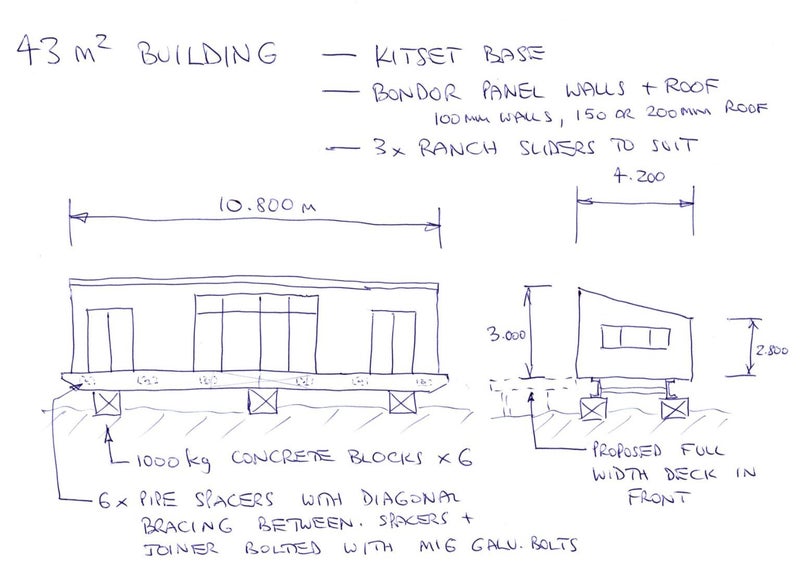 43 m² BUILDING — KITSET BASE
— BONDOR PANEL WALLS + ROOF
100MM WALLS, 150 OR 200MM ROOF
— 3x RANCH SLIDERS TO SUIT
4.200
10.800 M
3.000
2.800
1000 kg CONCRETE BLOCKS x 6
PROPOSED FULL
WIDTH DECK IN
FRONT
6x PIPE SPACERS WITH DIAGONAL
BRACING BETWEEN. SPACERS +
JOINER BOLTED WITH M16 GALV. BOLTS